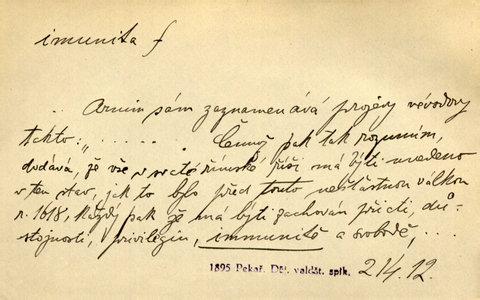 imunita f
.. Arnim sám zaznamenává projevy vévodovy
takto: „ . . . . . Čemuž jak tak rozumím,
dodává, že vše v svaté římské říši má býti uvedeno
v ten stav, jak to bylo před touto nešťastnou válkou
r. 1618, každý pak že má býti zachován při cti, dů-
stojnosti, privilegiu, immunitě a svobodě, ...
1895 Pekař. Děj. valdšt. spik. 214.12.